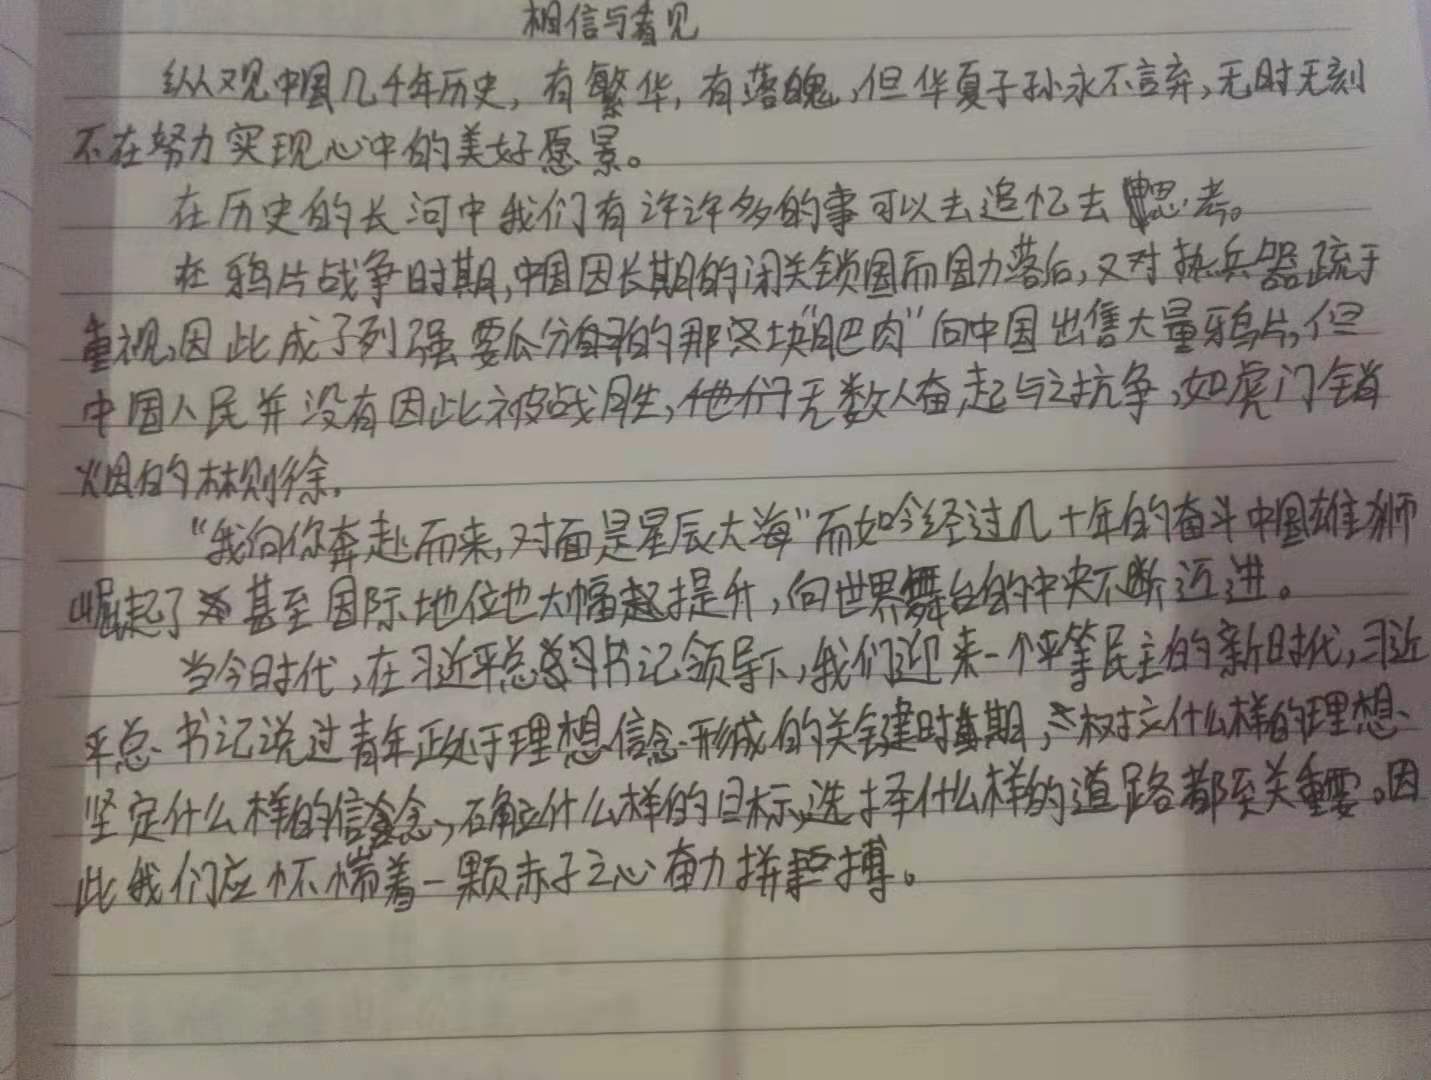 相信与看见
纵观中国几千年历史,有繁华,有落魄,但华夏子孙永不言弃,无时无刻
不在努力实现心中的美好愿景。
在历史的长河中我们有许许多多的事可以去追忆去思考。
在鸦片战争时期,中国因长期的闭关锁国而国力落后,又对热兵器疏于
重视,因此成了列强要瓜分的那块"肥肉"向中国出售大量鸦片,但
中国人民并没有因此被战胜,无数人奋起与之抗争,如虎门销
烟的林则徐.
"我向你奔赴而来,对面是星辰大海"而如今经过几十年的奋斗中国雄狮
崛起了甚至国际地位也大幅提升,向世界舞台的中央不断迈进。
当今时代,在习近平总书记领导下,我们迎来一个平等民主的新时代,习近
平总书记说过青年正处于理想信念形成的关键时期,树立什么样的理想、
坚定什么样的信念、确立什么样的目标,选择什么样的道路都至关重要。因
此我们应怀揣着一颗赤子之心奋力拼搏。